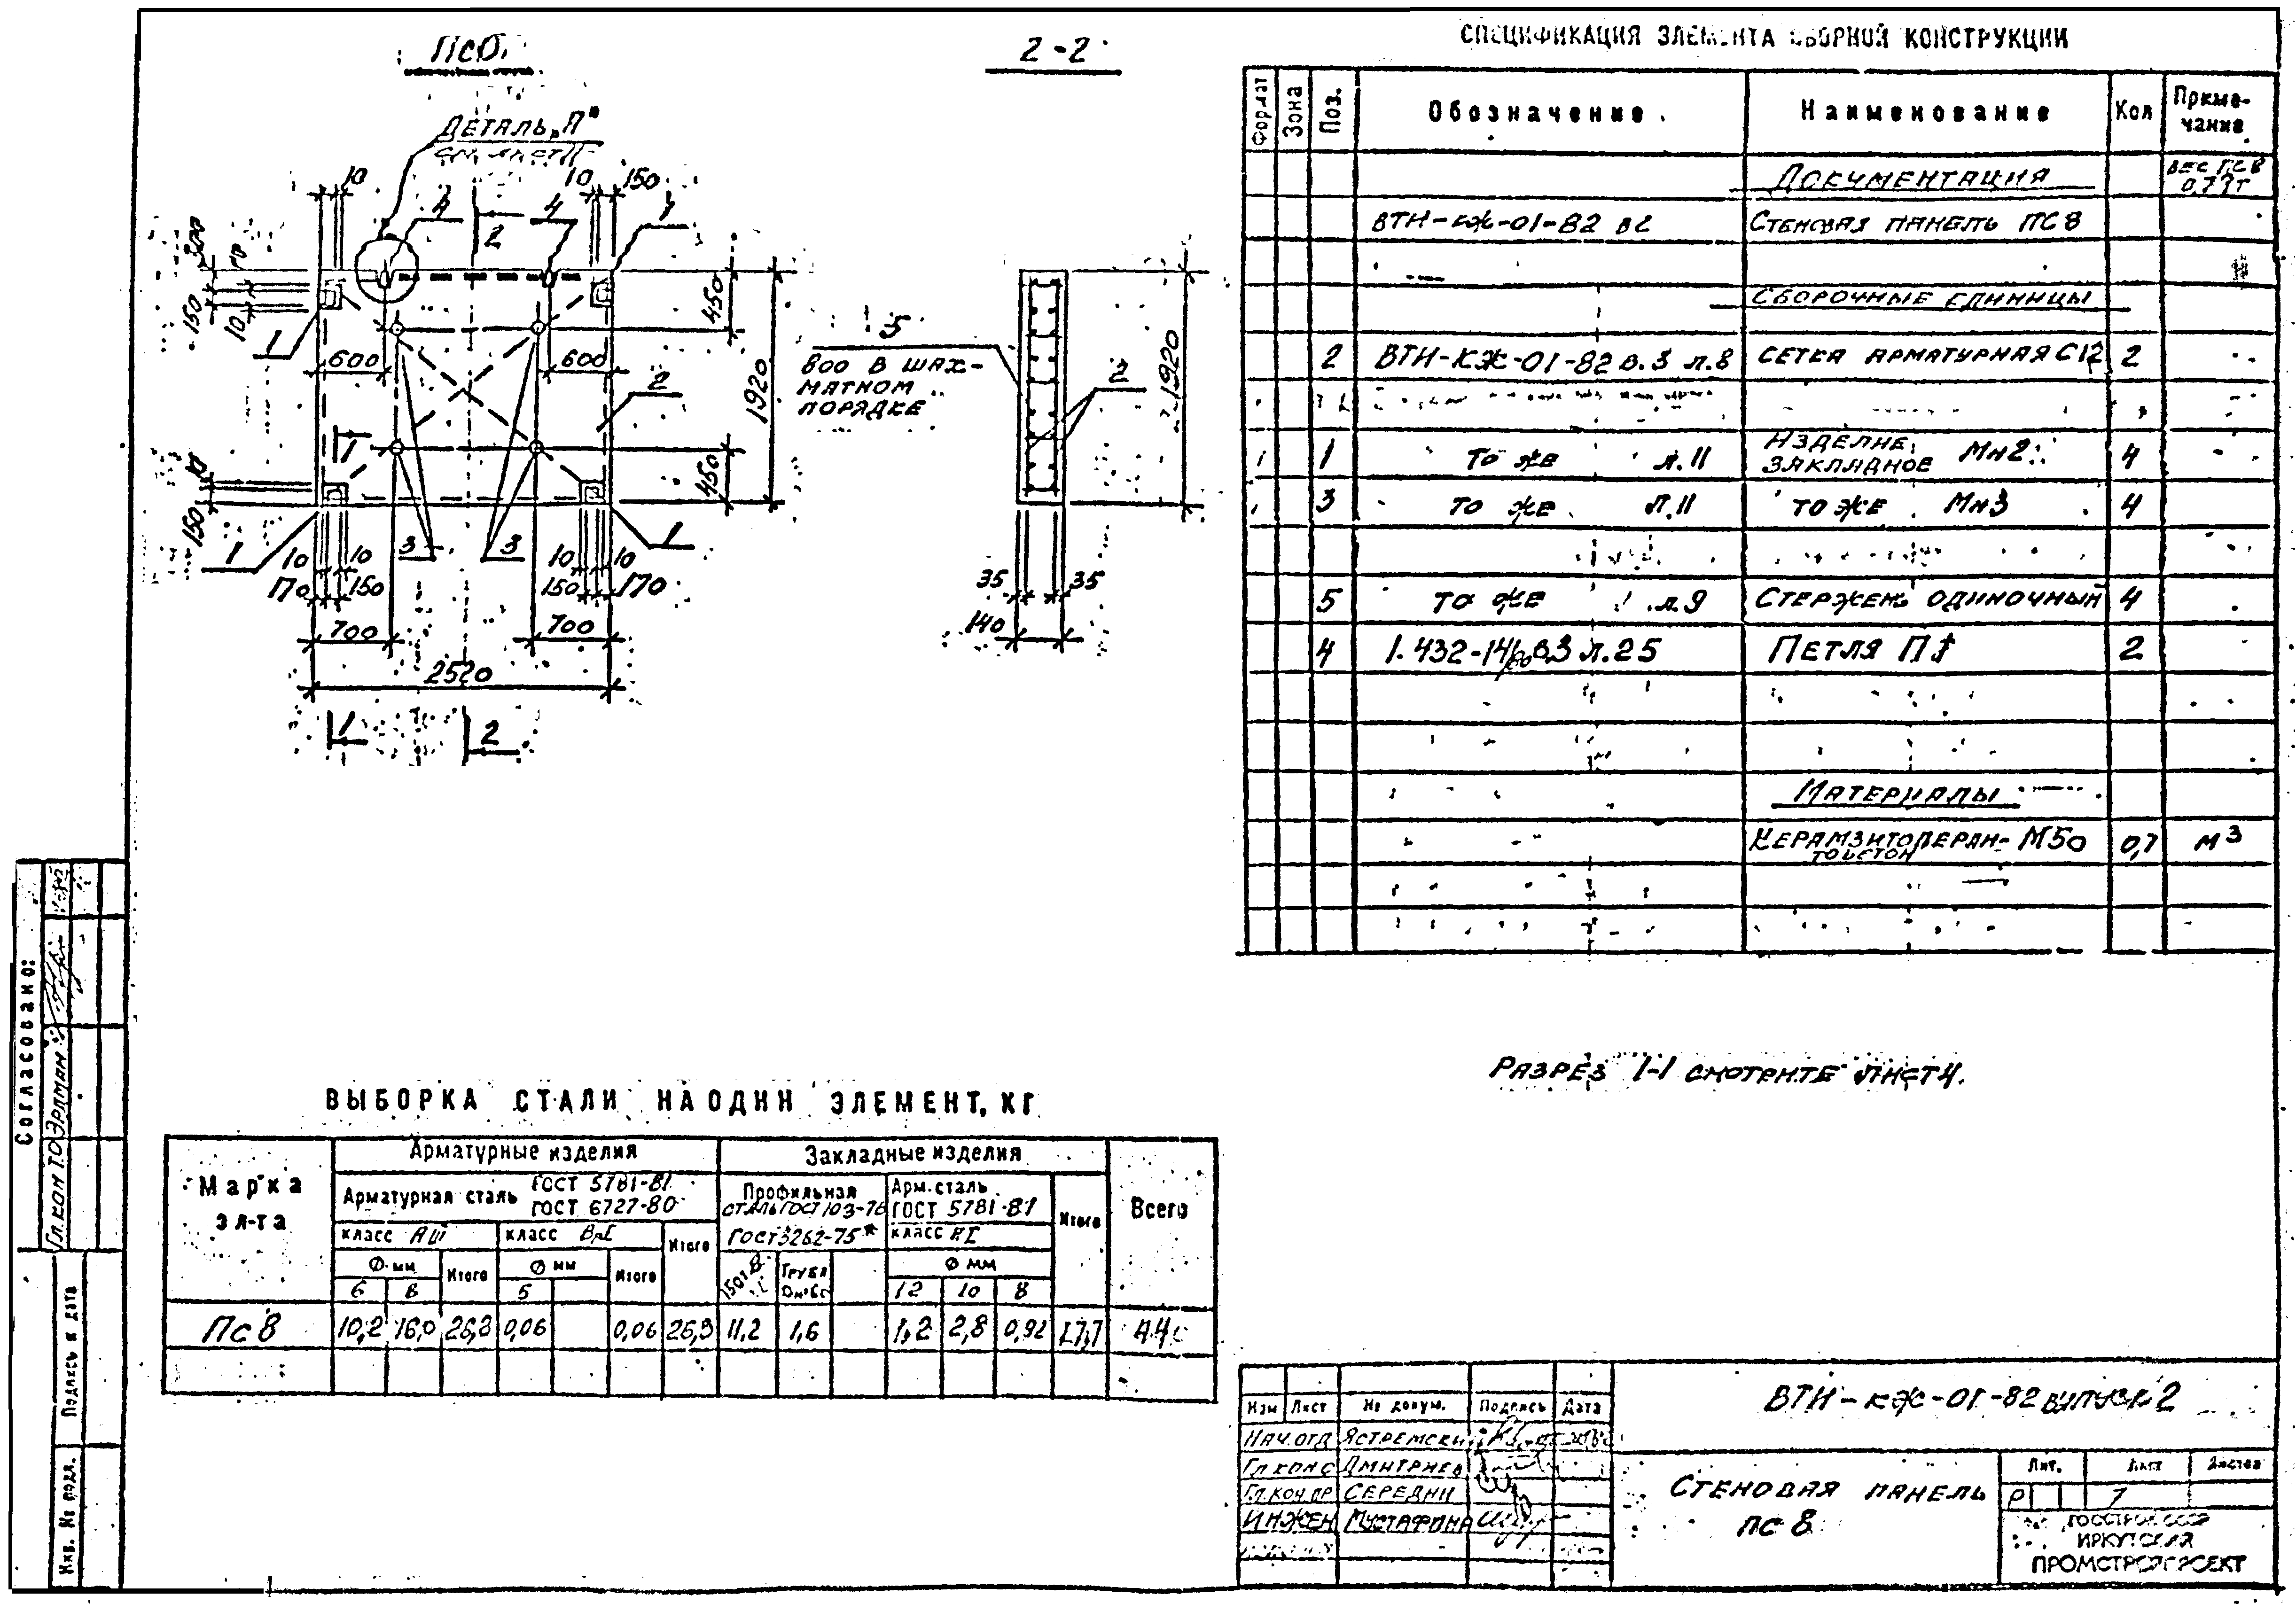 2-2
ДЕТАЛЬ „А"
10
10
150
4
4
1
2
150
10
1
600
600
450
1920
2
1
450
10
150
1
3
3
1
10
10
10
10
170
150
150
170
700
700
2520
1
2
5
800 В ШАХ-
МАТНОМ
ПОРЯДКЕ
2
1920
35
35
140
СПЕЦИФИКАЦИЯ ЭЛЕМЕНТА СБОРНОЙ КОНСТРУКЦИИ
Формат Зона Поз. Обозначение Наименование Кол Приме-
чание
ДОКУМЕНТАЦИЯ ВЕС ПС 8
ВТИ-КЖ-01-82 в2 СТЕНОВАЯ ПАНЕЛЬ ПС8
СБОРОЧНЫЕ ЕДИНИЦЫ
2 ВТИ-КЖ-01-82 в.3 л.8 СЕТКА АРМАТУРНАЯ С12 2
1 ТО ЖЕ л.11 ИЗДЕЛИЕ
ЗАКЛАДНОЕ Мн2 4
3 ТО ЖЕ л.11 ТО ЖЕ Мн3 4
5 ТО ЖЕ л.9 СТЕРЖЕНЬ ОДИНОЧНЫЙ 4
4 1.432-14/80 в.3 л.25 ПЕТЛЯ П1 2
МАТЕРИАЛЫ
КЕРАМЗИТОПЕРЛИ-
ТОБЕТОН М50 0,7 м3
РАЗРЕЗ 1-1 СМОТРИТЕ ЛИСТ 4.
ВЫБОРКА СТАЛИ НА ОДИН ЭЛЕМЕНТ, КГ
Марка
эл-та
Арматурные изделия Закладные изделия Всего
Арматурная сталь ГОСТ 5781-81
ГОСТ 6727-80
Профильная
СТАЛЬ ГОСТ 103-76
ГОСТ 3262-75*
Арм.сталь
ГОСТ 5781-81
Итого
класс АIII класс ВрI Итого класс АI
Ф мм Итого Ф мм Итого ТРУБА Ф мм
6 8 5 12 10 8
Пс 8 10,2 16,0 0,06 0,06 11,2 1,6 1,2 2,8 0,92 17,7
Согласовано:
Гл.КОН Т.О ЭРДМАН
Подпись и дата
Инв. № подл.
ВТИ-КЖ-01-82 ВЫПУСК 2
Изм Лист № докум. Подпись Дата
НАЧ.ОТД ЯСТРЕМСКИЙ
Гл.КОНС ДМИТРИЕВ
Гл.КОН.ПР СЕРЕДНИ
ИНЖЕН МУСТАФИНА
СТЕНОВАЯ ПАНЕЛЬ
ПС 8
Лит. Лист Листов
Р 7
ГОССТРОЙ СССР
ИРКУТСКИЙ
ПРОМСТРОЙПРОЕКТ